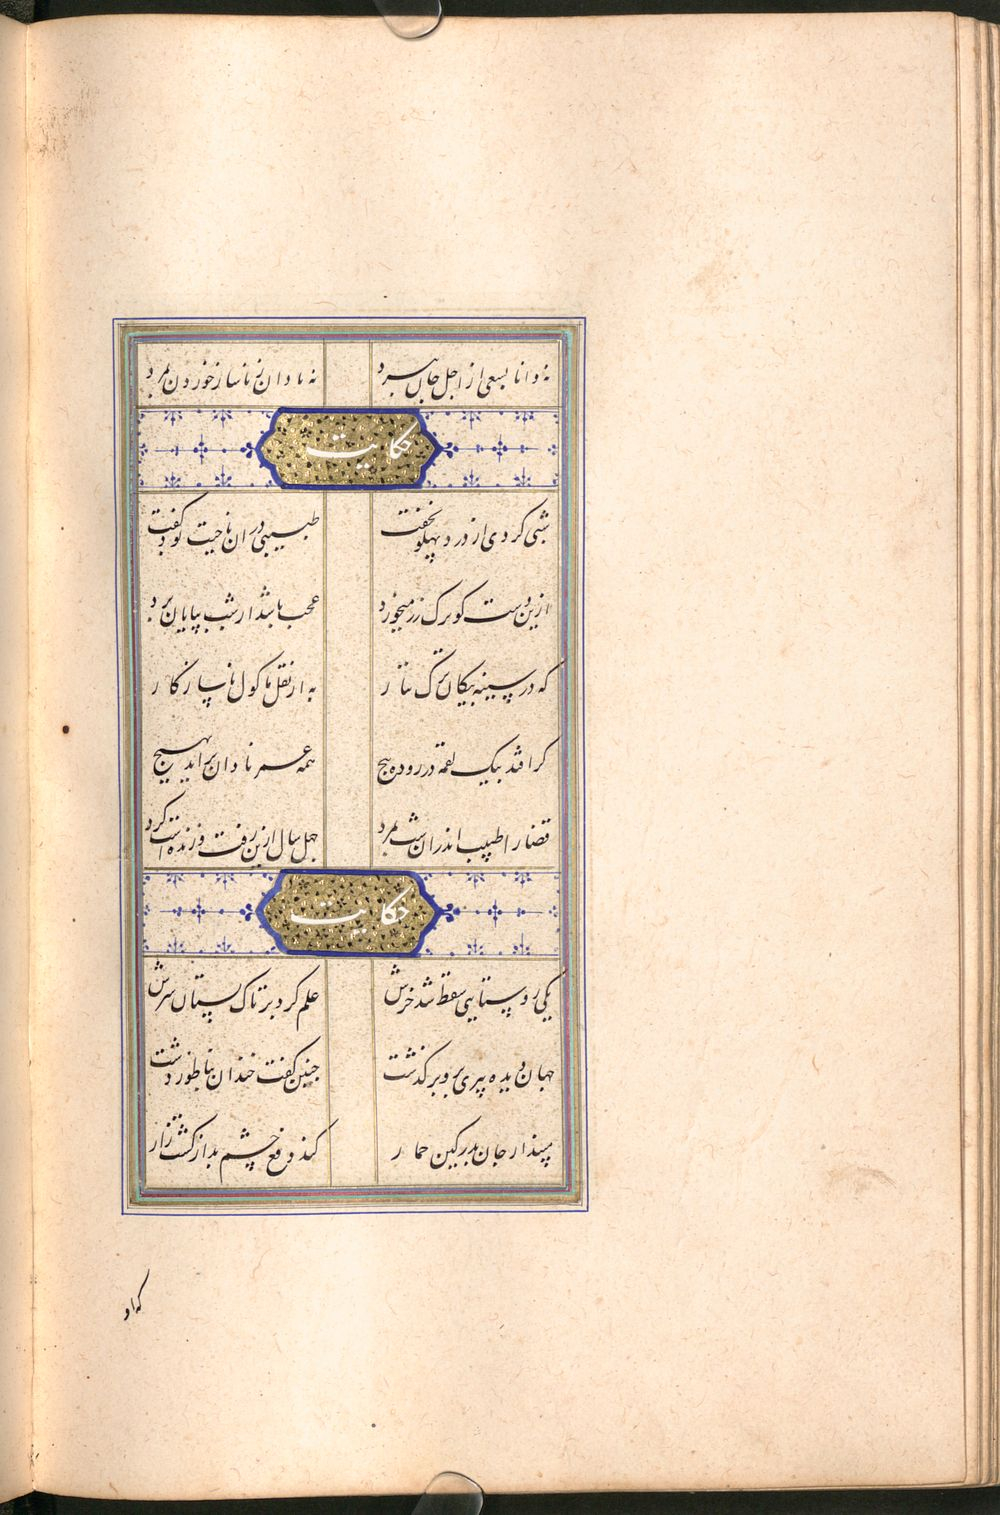 نه دانا بسعی از اجل جان ببرد نه نادان بناساز خوردن بمرد
حکایت
شبی کردی از درد پهلو نخفت طبیبی در ان ناحیت بود گفت
ازین دست کو برک رز میخورد عجب باشد ار شب بپایان برد
که در سینه پیکان ترک تتار به از نقل ماکول ناسازکار
گر افتد بیک لقمه در روده پیچ همه عمر نادان براید بهیچ
قضا را طبیب اندران شب بمرد چهل سال ازین رفت و زنده است کرد
حکایت
یکی روستایی سقط شد خرش علم کرد بر تاک بستان سرش
جهان دیده پیری برو بر گذشت چنین گفت خندان بناطور دشت
مپندار جان پدر کین حمار کند دفع چشم بد از کشتزار
که او